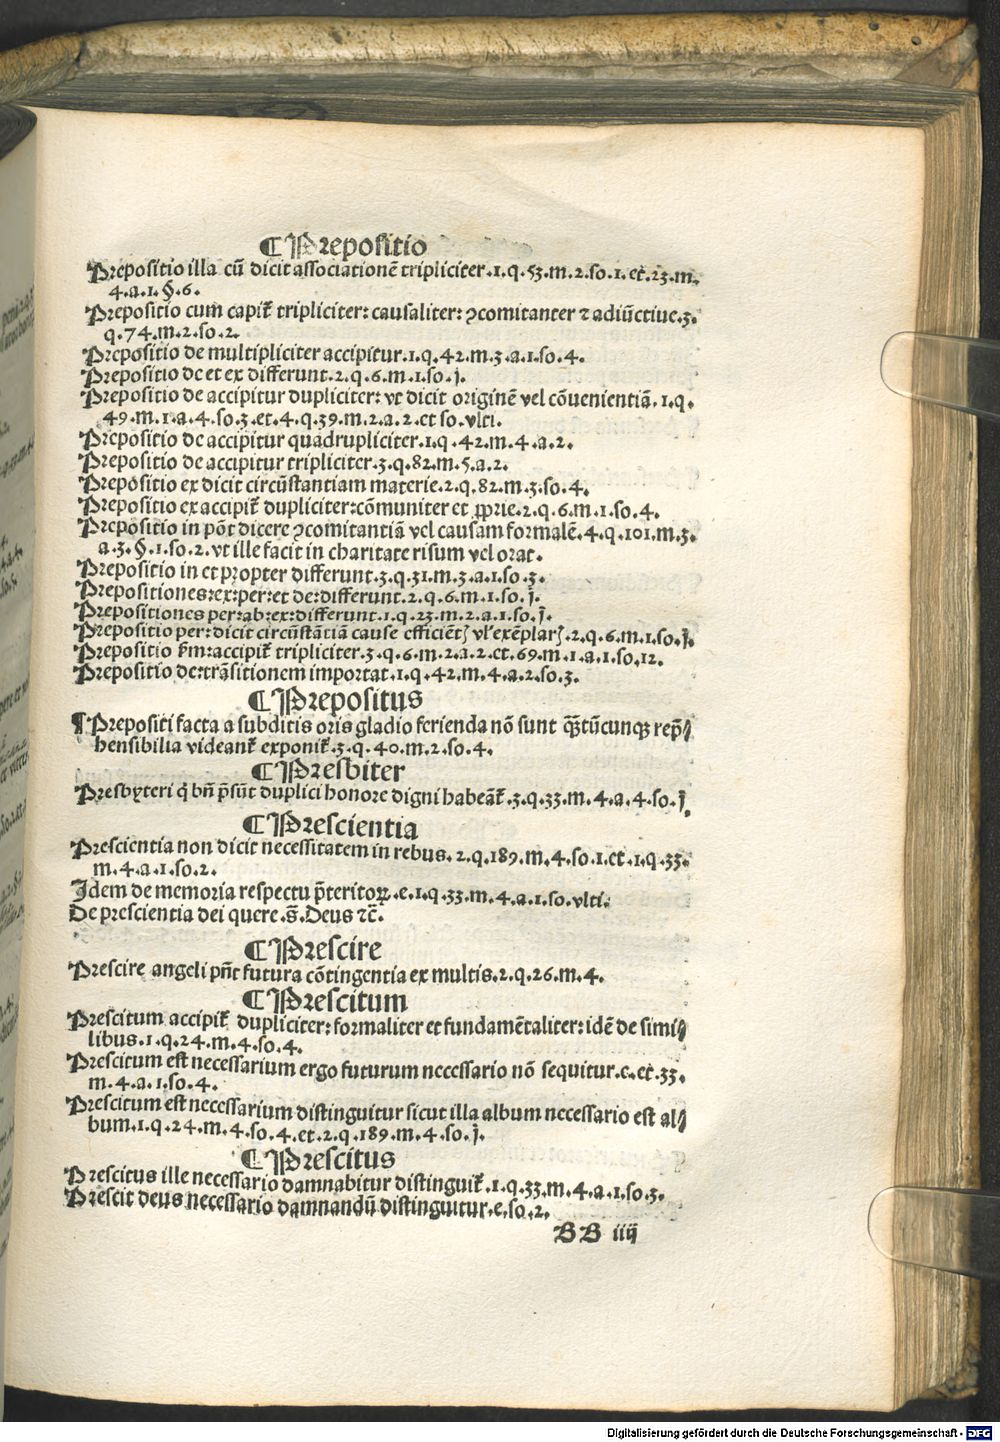 ¶ Prepositio
Prepositio illa cū dicit associationē tripliciter.1.q.53.m.2.so.1.et.23.m.
4.a.1.§.6.
Prepositio cum capit᷑ tripliciter: causaliter: ꝯcomitanter ⁊ adiūctiue.3.
q.74.m.2.so.2.
Prepositio de multipliciter accipitur.1.q.42.m.3.a.1.so.4.
Prepositio de et ex differunt.2.q.6.m.1.so.j.
Prepositio de accipitur dupliciter: vt dicit originē vel cōuenientiā.1.q.
49.m.1.a.4.so.3.et.4.q.39.m.2.a.2.et so.vlti.
Prepositio de accipitur quadrupliciter.1.q.42.m.4.a.2.
Prepositio de accipitur tripliciter.3.q.82.m.5.a.2.
Prepositio ex dicit circūstantiam materie.2.q.82.m.3.so.4.
Prepositio ex accipit᷑ dupliciter:cōmuniter et ꝓprie.2.q.6.m.1.so.4.
Prepositio in pōt dicere ꝯcomitantiā vel causam formalē.4.q.101.m.3.
a.3.§.1.so.2.vt ille facit in charitate risum vel orat.
Prepositio in et propter differunt.3.q.31.m.3.a.1.so.3.
Prepositiones:ex:per:et de:differunt.2.q.6.m.1.so.j.
Prepositiones per:ab:ex:differunt.1.q.23.m.2.a.1.so.j.
Prepositio per: dicit circūstātiā cause efficiētꝭ vl' exēplarꝭ.2.q.6.m.1.so.j.
Prepositio ẜm:accipit᷑ tripliciter.3.q.6.m.2.a.2.et.69.m.1.a.1.so.12.
Prepositio de:trāsitionem importat.1.q.42.m.4.a.2.so.3.
¶ Prepositus
¶ Prepositi facta a subditis oris gladio ferienda nō sunt q̄tūcunqꝫ rep̄⸗
hensibilia videant᷑ exponit᷑.3.q.40.m.2.so.4.
¶ Presbiter
Presbyteri q̇ bn̄ p̄sūt duplici honore digni habeāt᷑.3.q.33.m.4.a.4.so.j.
¶ Prescientia
Prescientia non dicit necessitatem in rebus.2.q.189.m.4.so.1.et.1.q.33.
m.4.a.1.so.2.
Idem de memoria respectu p̄teritoꝝ.e.1.q.33.m.4.a.1.so.vlti.
De prescientia dei quere.s̄.Deus ⁊c̄.
¶ Prescire
Prescire angeli pn̄t futura cōtingentia ex multis.2.q.26.m.4.
¶ Prescitum
Prescitum accipit᷑ dupliciter:formaliter et fundamētaliter:idē de simi⸗
libus.1.q.24.m.4.so.4.
Prescitum est necessarium ergo futurum necessario nō sequitur.e.et.33.
m.4.a.1.so.4.
Prescitum est necessarium distinguitur sicut illa album necessario est al⸗
bum.1.q.24.m.4.so.4.et.2.q.189.m.4.so.j.
¶ Prescitus
Prescitus ille necessario damnabitur distinguit᷑.1.q.33.m.4.a.1.so.3.
Prescit deus necessario damnandū distinguitur.e.so.2.
BB iiij
Digitalisierung gefördert durch die Deutsche Forschungsgemeinschaft - DFG